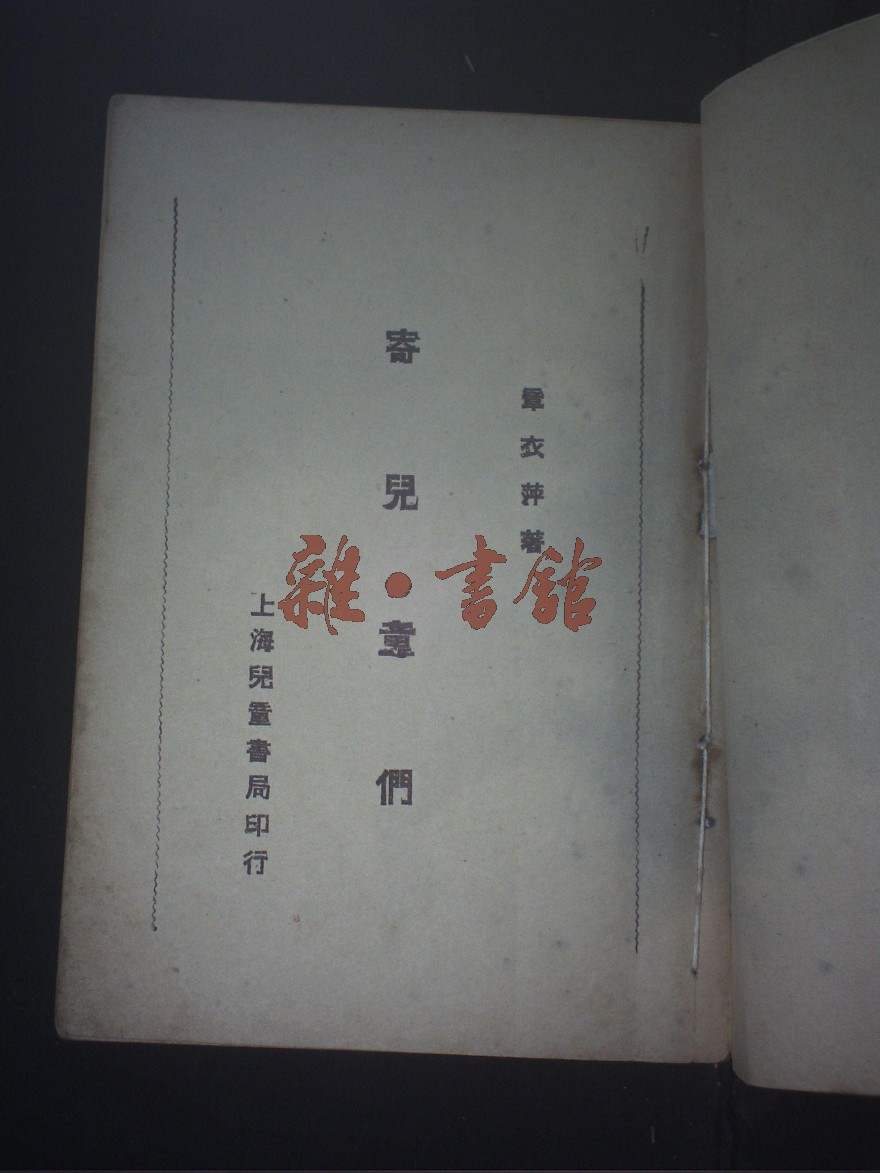 章衣萍著
寄兒童們
上海兒童書局印行
雜·書館